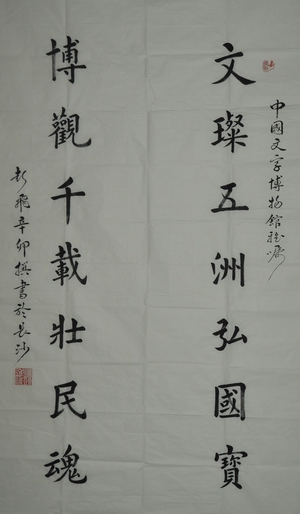 中國文字博物館雅嘱
文璨五洲弘國寶
博觀千載壯民魂
彭飛辛卯撰書於長沙